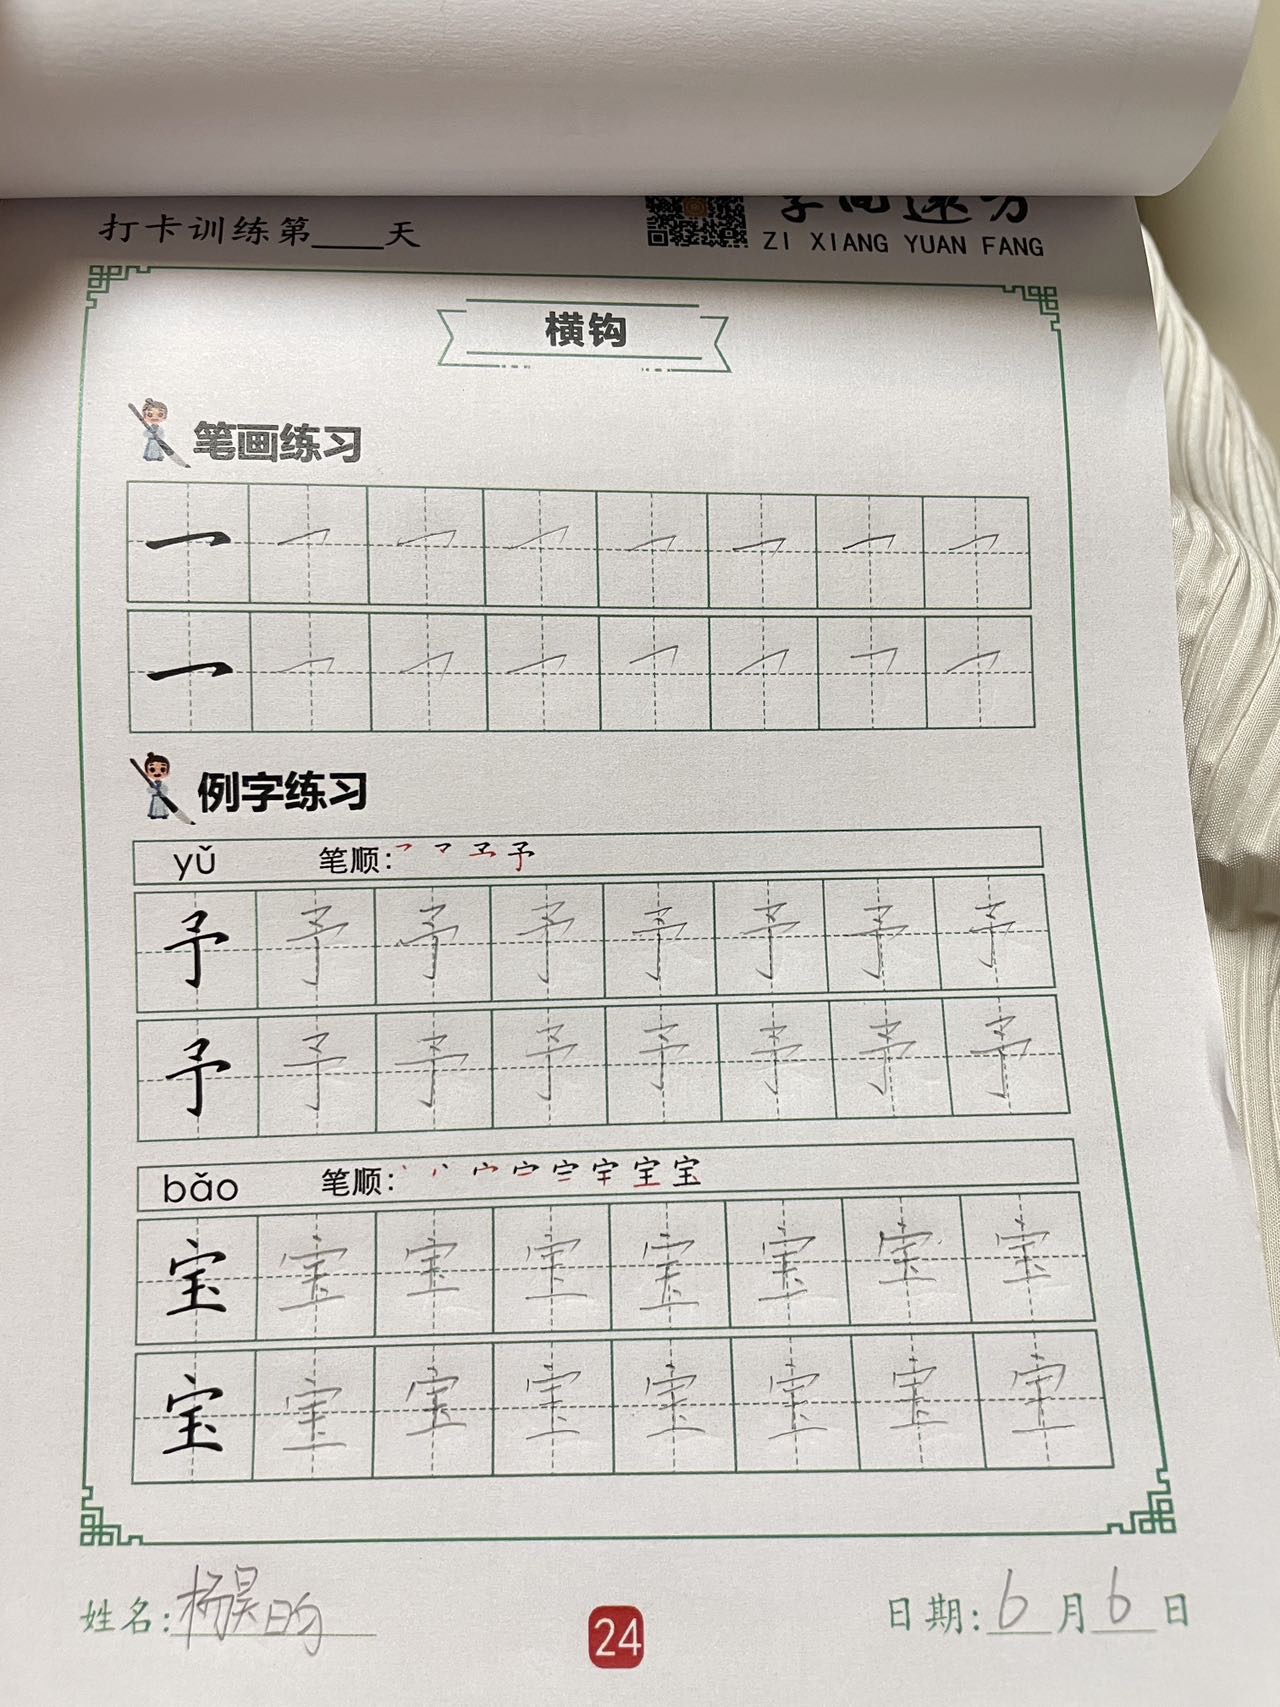 打卡训练第____天
字间远方
ZI XIANG YUAN FANG
横钩
笔画练习
例字练习
yǔ 笔顺:
予 予 予 予 予 予 予 予
予 予 予 予 予 予 予 予
bǎo 笔顺:
宝 宝 宝 宝 宝 宝 宝 宝
宝 宝 宝 宝 宝 宝 宝 宝
姓名:杨昊昀 24 日期:6月6日